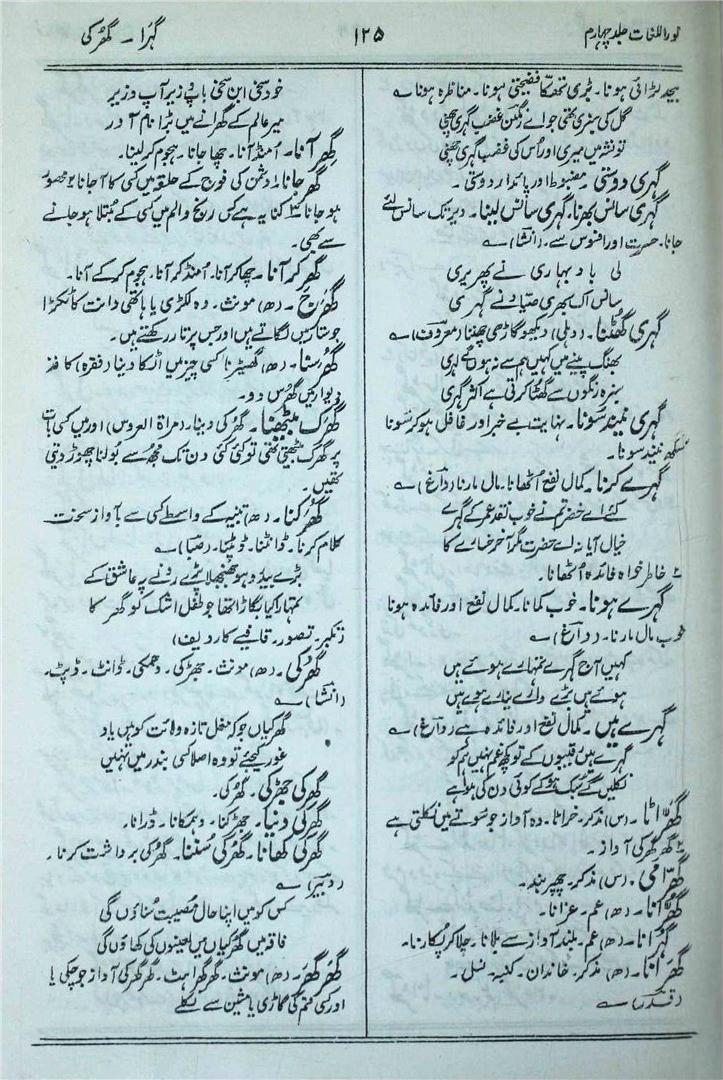 نوراللغات جلد چہارم
۱۲۵
گہرا ۔ گھُرکی
بیحد لڑائی ہونا۔ بُری تھُکّا فضیحتی ہونا۔ مناظرہ ہونا ؎
گل کی سبزی تھی جو اے غضب گہری چھنی
تو نشہ میں میری اور اُس کی غضب گہری چھنی
گہری دوستی ۔ مضبوط اور پائدار دوستی ۔
گہری سانس بھرنا۔ گہری سانس لینا۔ دیر تک سانس لئے
جانا۔ حسرت اور افسوس سے۔ (انشا) ؎
لی باد بہاری نے پھریری
سانس اک بھری صیاد نے گہری
گہری گھُٹنا۔ (دہلی) دیکھو گاڑھی چھننا (معروف) ؎
بھنگ پینے میں کہیں ہم سے نہ ہوں گے گہری
سبزہ رنگوں سے گھُٹا کرتی ہے اکثر گہری
گہری نیند سونا۔ نہایت بے خبر اور غافل ہو کر سونا
سُکھ نیند سونا۔
گہرے کرنا۔ کمال نفع اُٹھانا۔ مال مارنا (داغ) ؎
کئے اے خضر تم نے خوب نقد عمر کے گہرے
خیال آیا نہ اے حضرت مگر آخر خسارے کا
۲ خاطر خواہ فائدہ اُٹھانا۔
گہرے ہونا۔ خوب کمانا۔ کمال نفع اور فائدہ ہونا
خوب مال مارنا۔ (داغ) ؎
کہیں آج گہرے تمہارے ہوئے ہیں
ہوئے ہیں بڑے وارے نیارے ہوئے ہیں
گہرے ہیں ۔ کمال نفع اور فائدہ ہے (داغ) ؎
گہرے ہیں رقیبوں کے تو کچھ غم نہیں ہم کو
نکلیں گے کوئی دن کی ہوا ہے
گھرّاٹا۔ (س) مذکر۔ خراٹا۔ وہ آواز جو سوتے میں نکلتی ہے
۲ گھر گھر کی آواز۔
گھرّامی۔ (س) مذکر۔ چھپر بند۔
گھُرّانا۔ (ھ) عم۔ غرانا۔
گہرانا۔ (ھ) عم۔ بلند آواز سے بلانا۔ چلا کر پکارنا۔
گھرانا۔ (ھ) مذکر۔ خاندان۔ کنبہ۔ نسل۔
(قدر) ؎
خود سخی ابن سخی باپ وزیر آپ وزیر
میر عالم کے گھرانے میں بڑا نام آور
گھِر آنا۔ اُمنڈ آنا۔ چھا جانا۔ ہجوم کر لینا۔
گھِر جانا۔ ۱ دشمن کی فوج کے حلقہ میں کسی کا آجانا ۲ محصور
ہو جانا ۳ کنایہ ہے کس رنج و الم میں کسی کے مبتلا ہو جانے
سے بھی۔
گھِر کر آنا۔ چھا کر آنا۔ اُمنڈ کر آنا۔ ہجوم کر کے آنا۔
گھُرج۔ (ھ) مونث۔ وہ لکڑی یا ہاتھی دانت کا ٹکڑا
جو ستار میں لگاتے ہیں اور جس پر تار رکھتے ہیں۔
گھُرسنا۔ (ھ) گھسیڑنا کسی چیز میں اڑکا دینا (فقرہ) کاغذ
دیوار میں گھُرس دو۔
گھُرک بیٹھنا۔ گھُرکی دینا۔ (مراۃ العروس) اور میں کسی بات
پر گھرک بیٹھتی تھی تو کئی کئی دن تک مجھ سے بولنا چھوڑ دیتی
تھیں۔
گھُرکنا۔ (ھ) تنبیہ کے واسطے کسی سے بآواز سخت
کلام کرنا۔ ڈانٹنا۔ ڈپٹنا۔ (صبا) ؎
بڑے بیدرد ہو جھنجھلا پڑے رونے پہ عاشق کے
تمہارا کیا بگاڑا تھا جو طفل اشک کو گھرکا
(تکبر۔ تصور۔ قافیے کا ردیف)
گھُرکی۔ (ھ) مونث۔ جھڑکی۔ دھمکی۔ ڈانٹ۔ ڈپٹ۔
(انشا) ؎
گھرکیاں جو کہ مغل تازہ ولایت کو ہیں یاد
غور کیجئے تو وہ اصلا کسی بندر میں نہیں
گھُرکی جھڑکی۔ گھُرکی۔
گھُرکی دینا۔ جھڑکنا۔ دہمکانا۔ ڈرانا۔
گھُرکی کھانا۔ گھُرکی سُننا۔ گھُرکی برداشت کرنا۔
(دبیر) ؎
کس کو میں اپنا حال مصیبت سُناؤں گی
فاقہ میں گھرکیاں میں لعینوں کی کھاؤں گی
گھُرگھُر۔ (ھ) مونث۔ گھرگھراہٹ۔ گھرگھر کی آواز جو چکی یا
اور کسی قسم کی گاڑی یا مشین سے نکلے